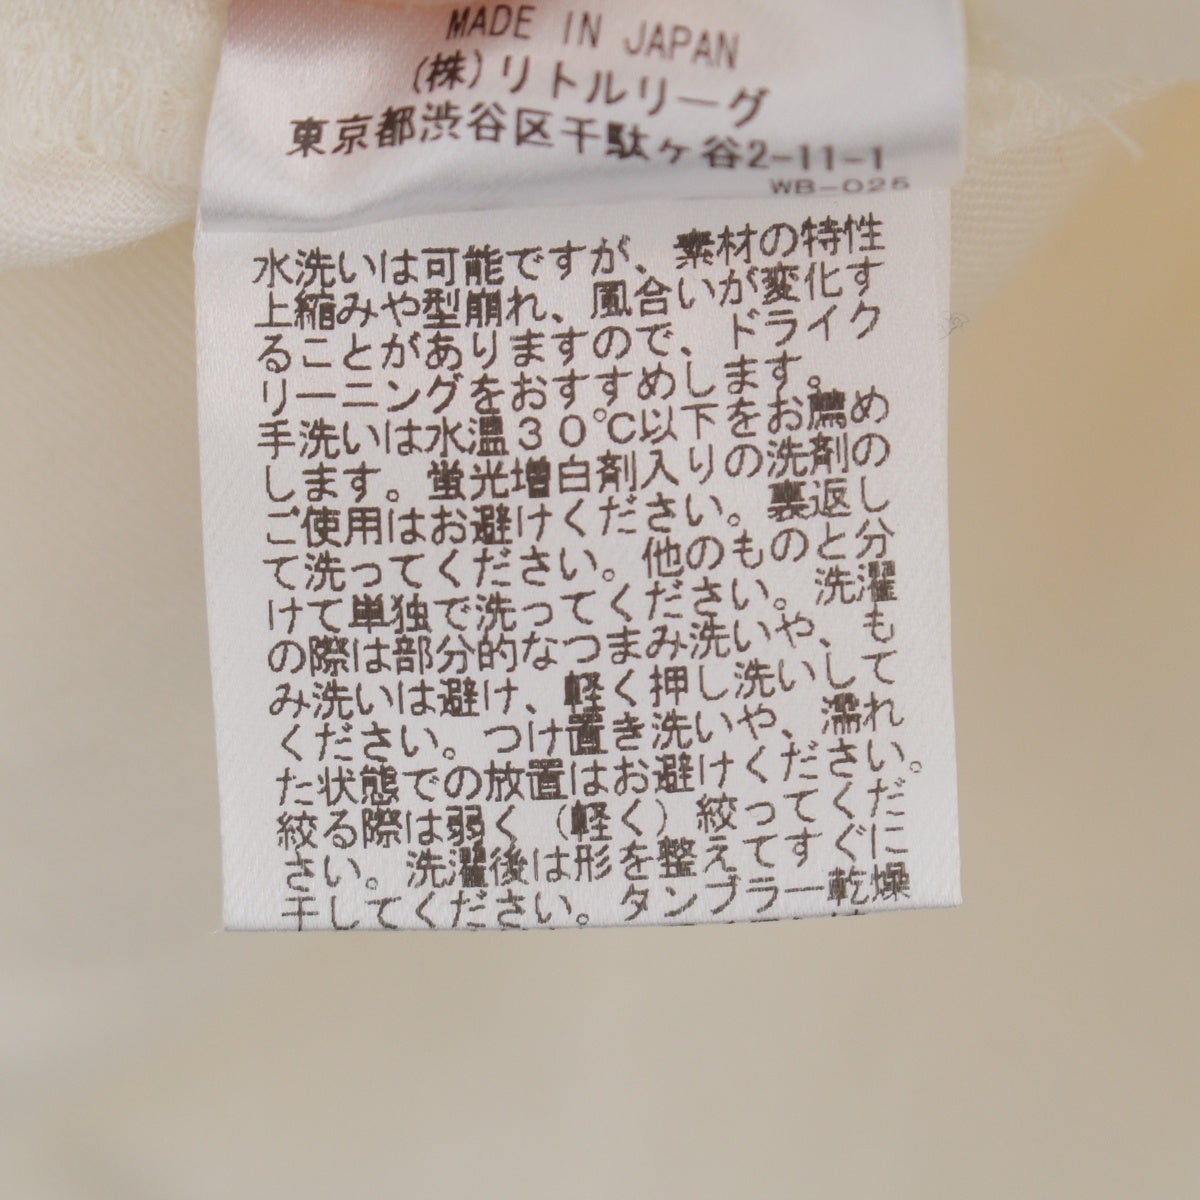 MADE IN JAPAN
(株)リトルリーグ
東京都渋谷区千駄ヶ谷2-11-1
WB-025
水洗いは可能ですが、素材の特性
上縮みや型崩れ、風合いが変化す
ることがありますので、ドライク
リーニングをおすすめします。
手洗いは水温30℃以下をお薦め
します。蛍光増白剤入りの洗剤の
ご使用はお避けください。裏返し
て洗ってください。他のものと分
けて単独で洗ってください。洗濯
の際は部分的なつまみ洗いや、も
み洗いは避け、軽く押し洗いして
ください。つけ置き洗いや、濡れ
た状態での放置はお避けください。
絞る際は弱く(軽く)絞ってくだ
さい。洗濯後は形を整えてすぐに
干してください。タンブラー乾燥